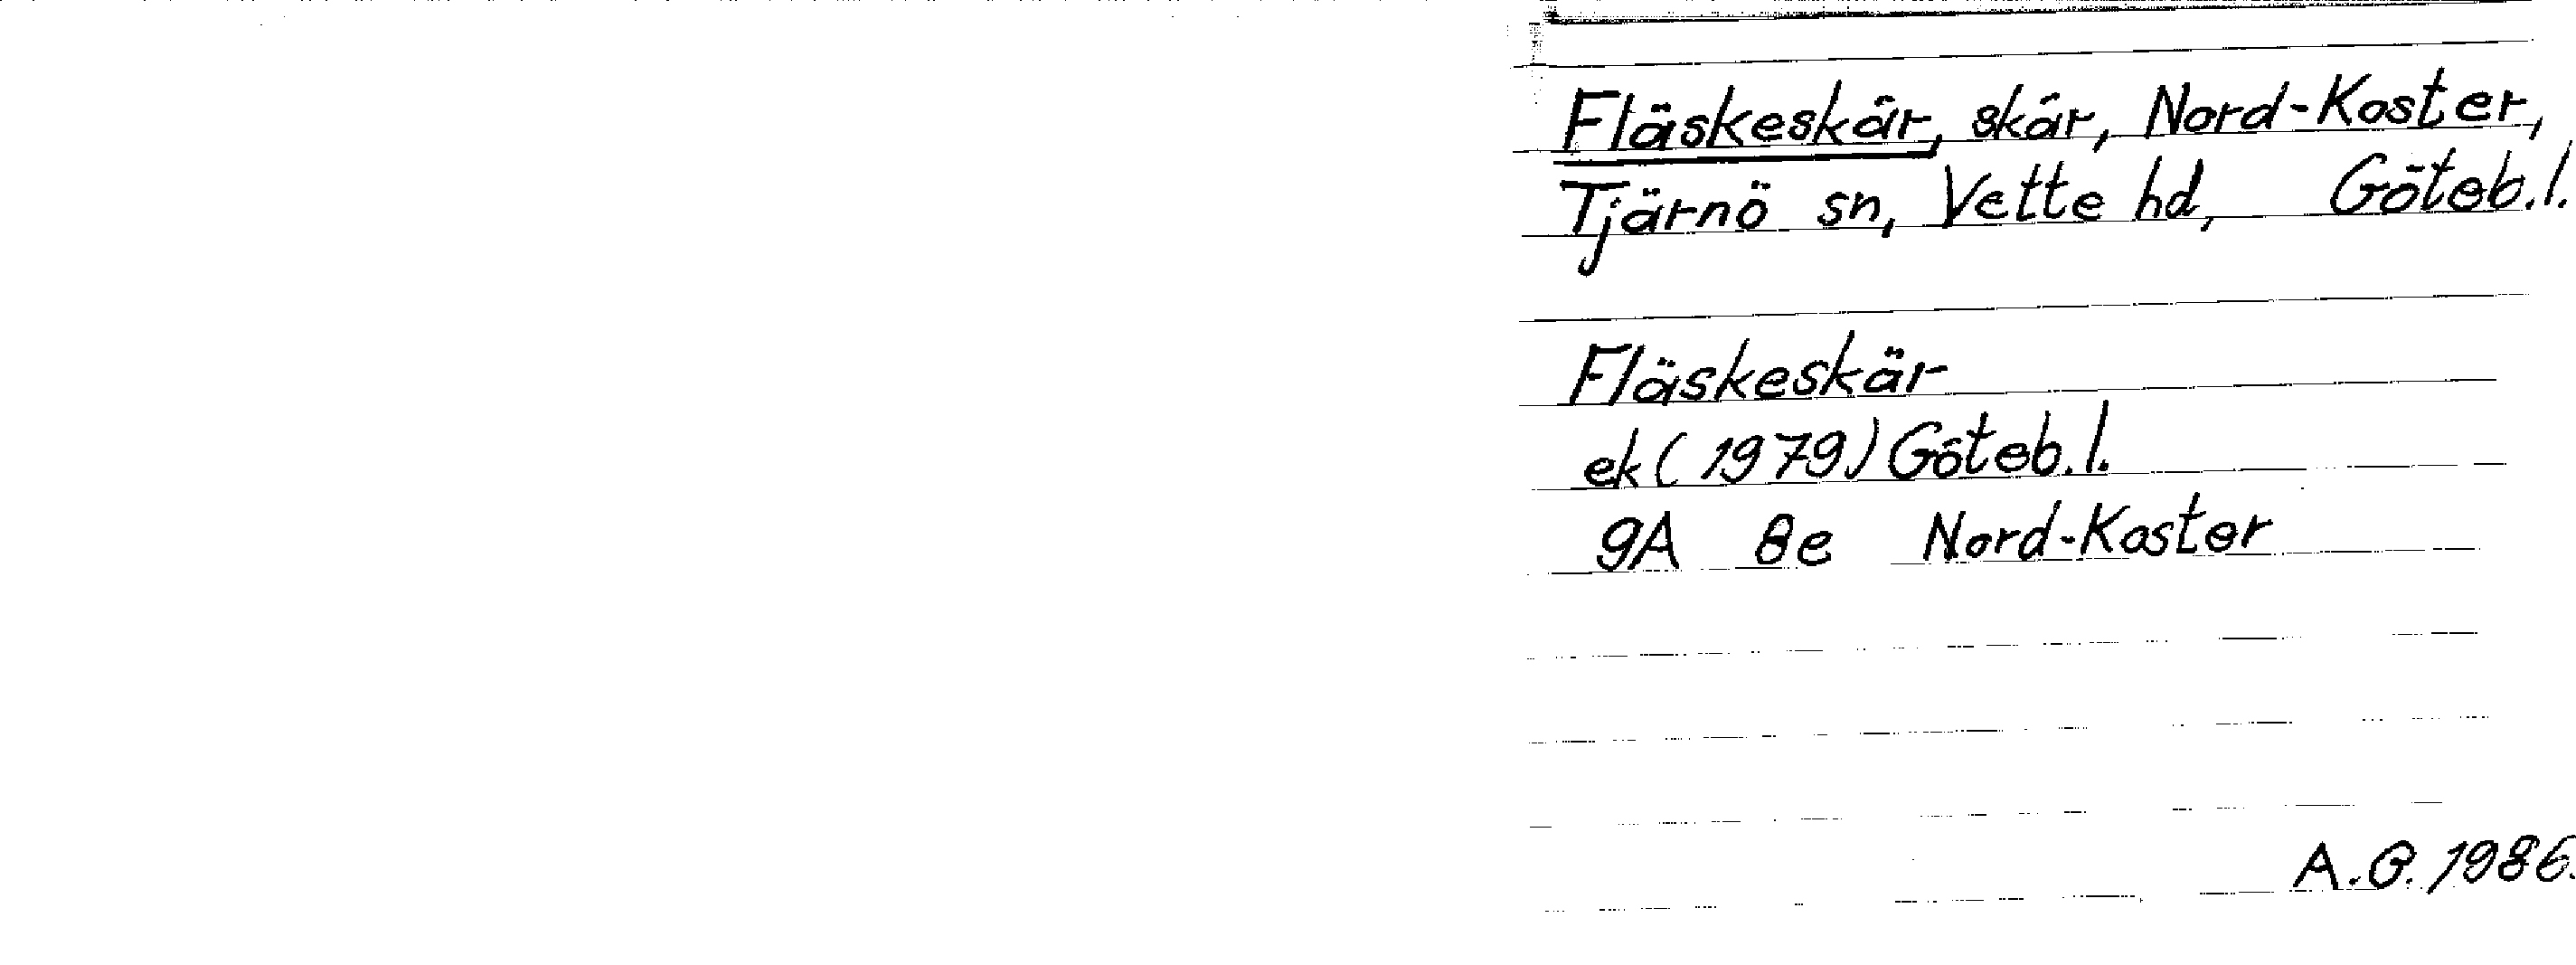 Fläskeskär, skär, Nord-Koster,
Tjärnö sn, Vette hd, Göteb.l.
Fläskeskär
ek (1979) Göteb.l.
9A 8e Nord-Koster
A.G. 1986.